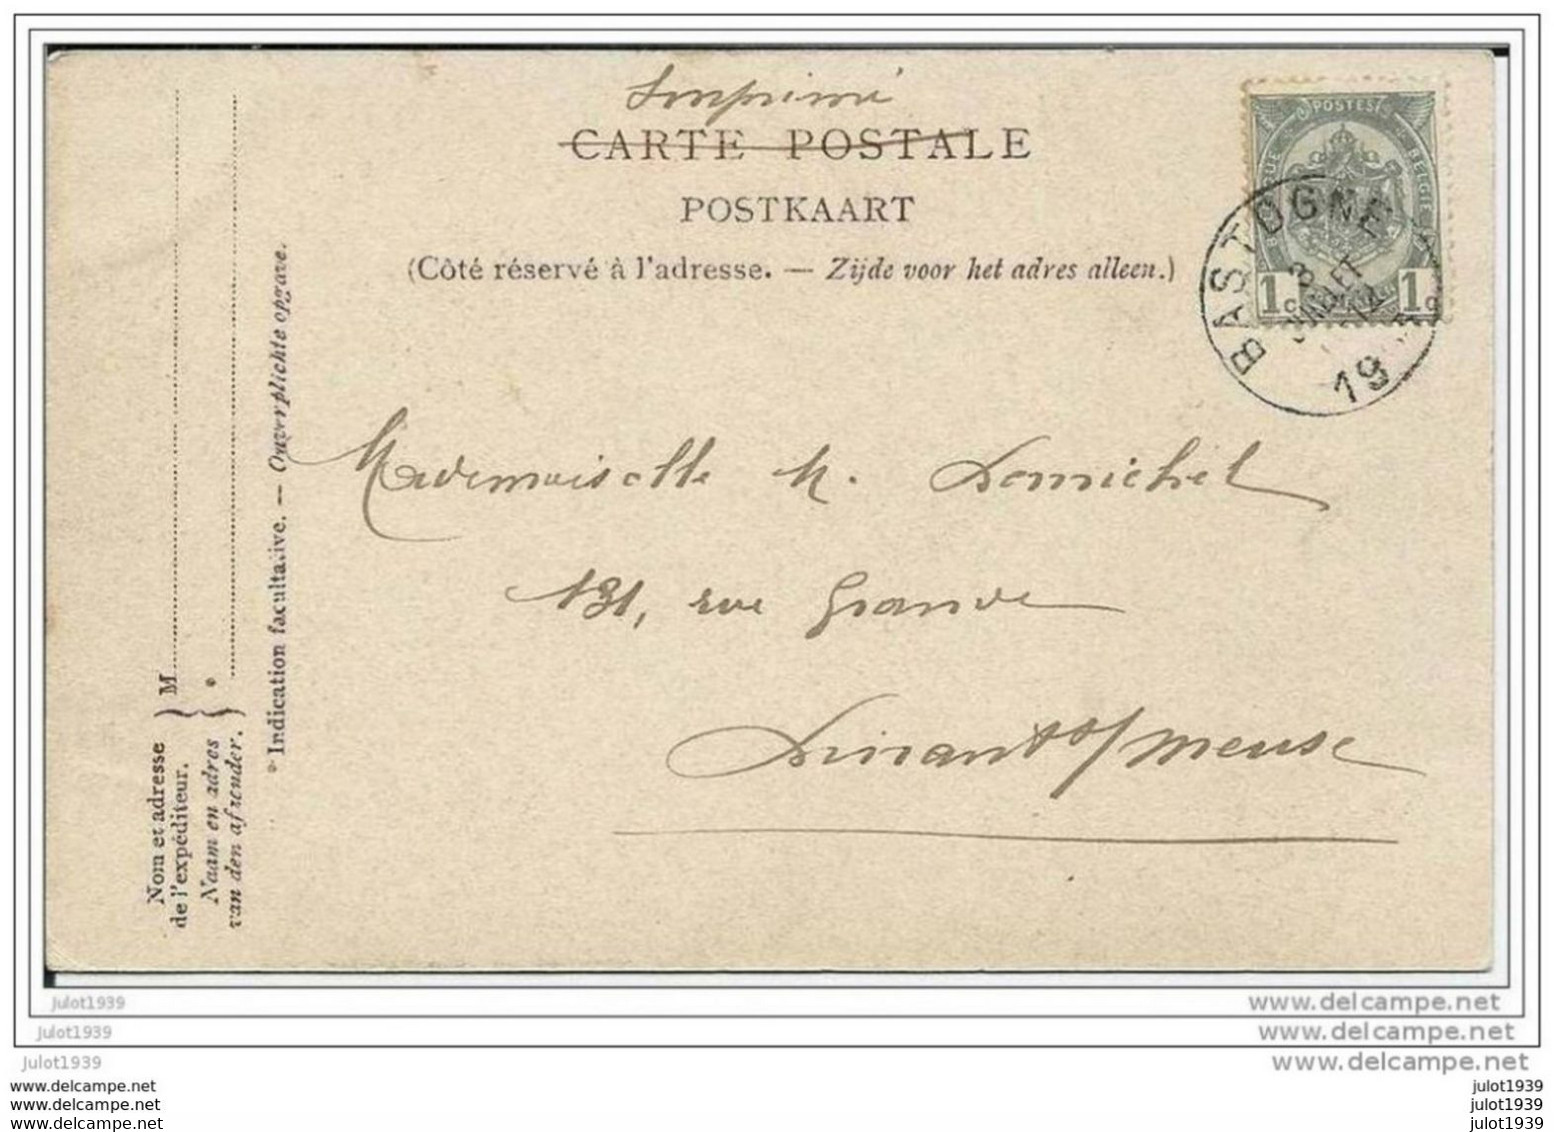 Imprimé
CARTE POSTALE
POSTKAART
(Côté réservé à l'adresse. — Zijde voor het adres alleen.)
POSTES
BELGIE
1c 1c
BASTOGNE
3
JUILLET
12
19
Mademoiselle M. Domichel
131, rue Grande
Dinant s/ meuse
M
*
Nom et adresse
de l'expéditeur.
Naam en adres
van den afzender.
* Indication facultative. — Onverplichte opgave.
julot1939 www.delcampe.net
julot1939 www.delcampe.net
julot1939 www.delcampe.net
www.delcampe.net julot1939
www.delcampe.net julot1939
www.delcampe.net julot1939